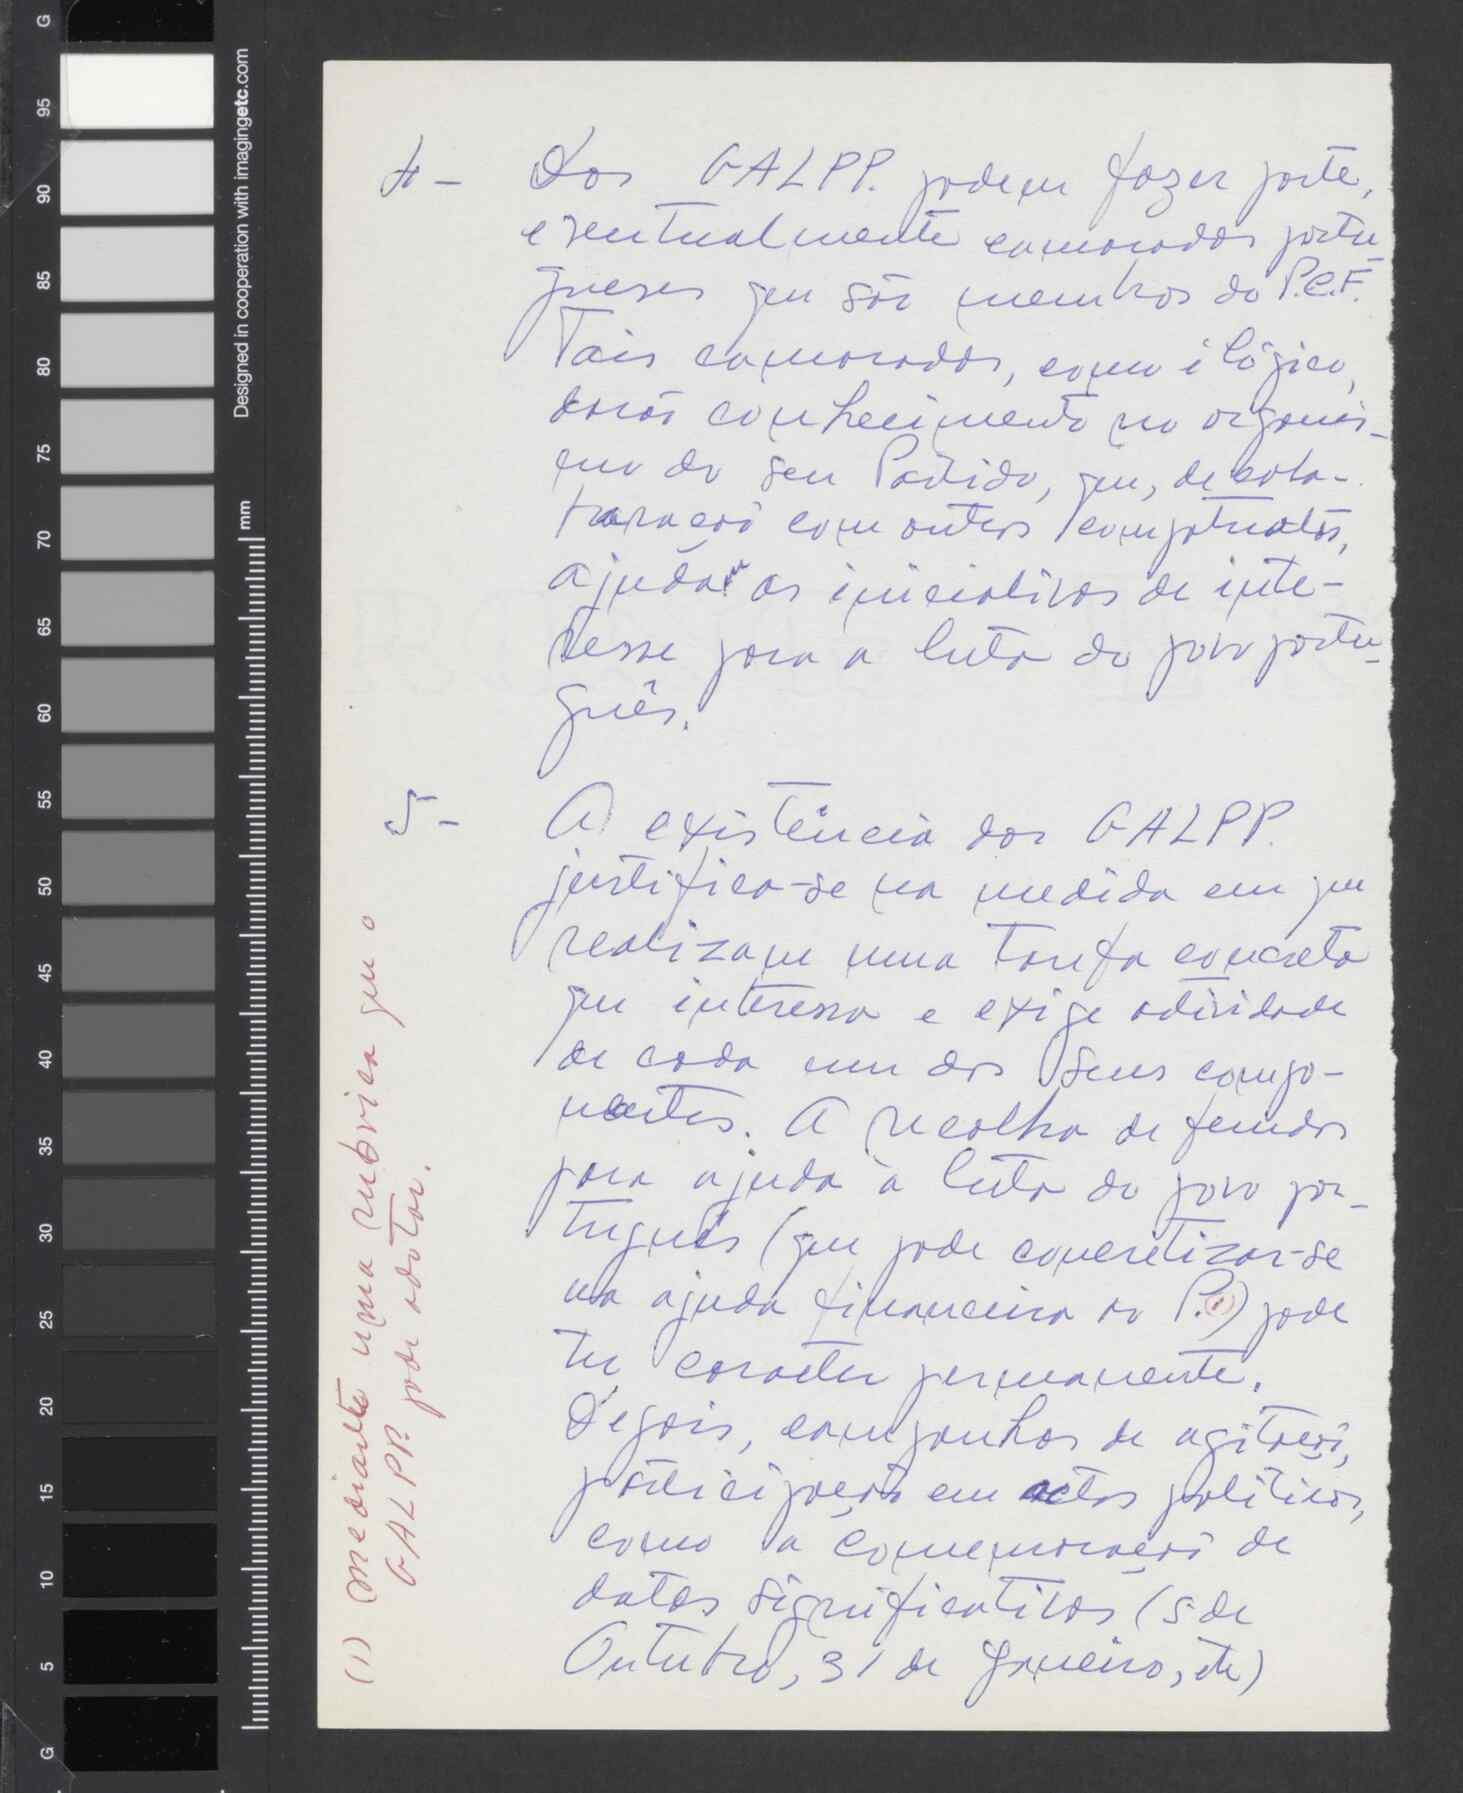 4 - Dos GALPP. podem fazer parte,
eventualmente camaradas portu-
gueses que são membros do P.C.F.
Tais camaradas, como é lógico,
darão conhecimento no organis-
mo do seu Partido, que, de cola-
boração com outros compatriotas,
ajudam as iniciativas de inte-
resse para a luta do povo portu-
guês.
5 - A existência dos GALPP.
justifica-se na medida em que
realizam uma tarefa concreta
que interessa e exige atividade
de cada um dos seus compo-
nentes. A recolha de fundos
para ajuda à luta do povo por-
tuguês (que pode concretizar-se
na ajuda financeira ao P.(1)) pode
ter caracter permanente.
Depois, campanhas de agitação,
participação em actos políticos,
como a comemoração de
datas significativas (5 de
Outubro, 31 de Janeiro, etc)
(1) mediante uma rubrica que o
GALPP. pode adotar.
Designed in cooperation with imagingetc.com
mm
G
95
90
85
80
75
70
65
60
55
50
45
40
35
30
25
20
15
10
5
G